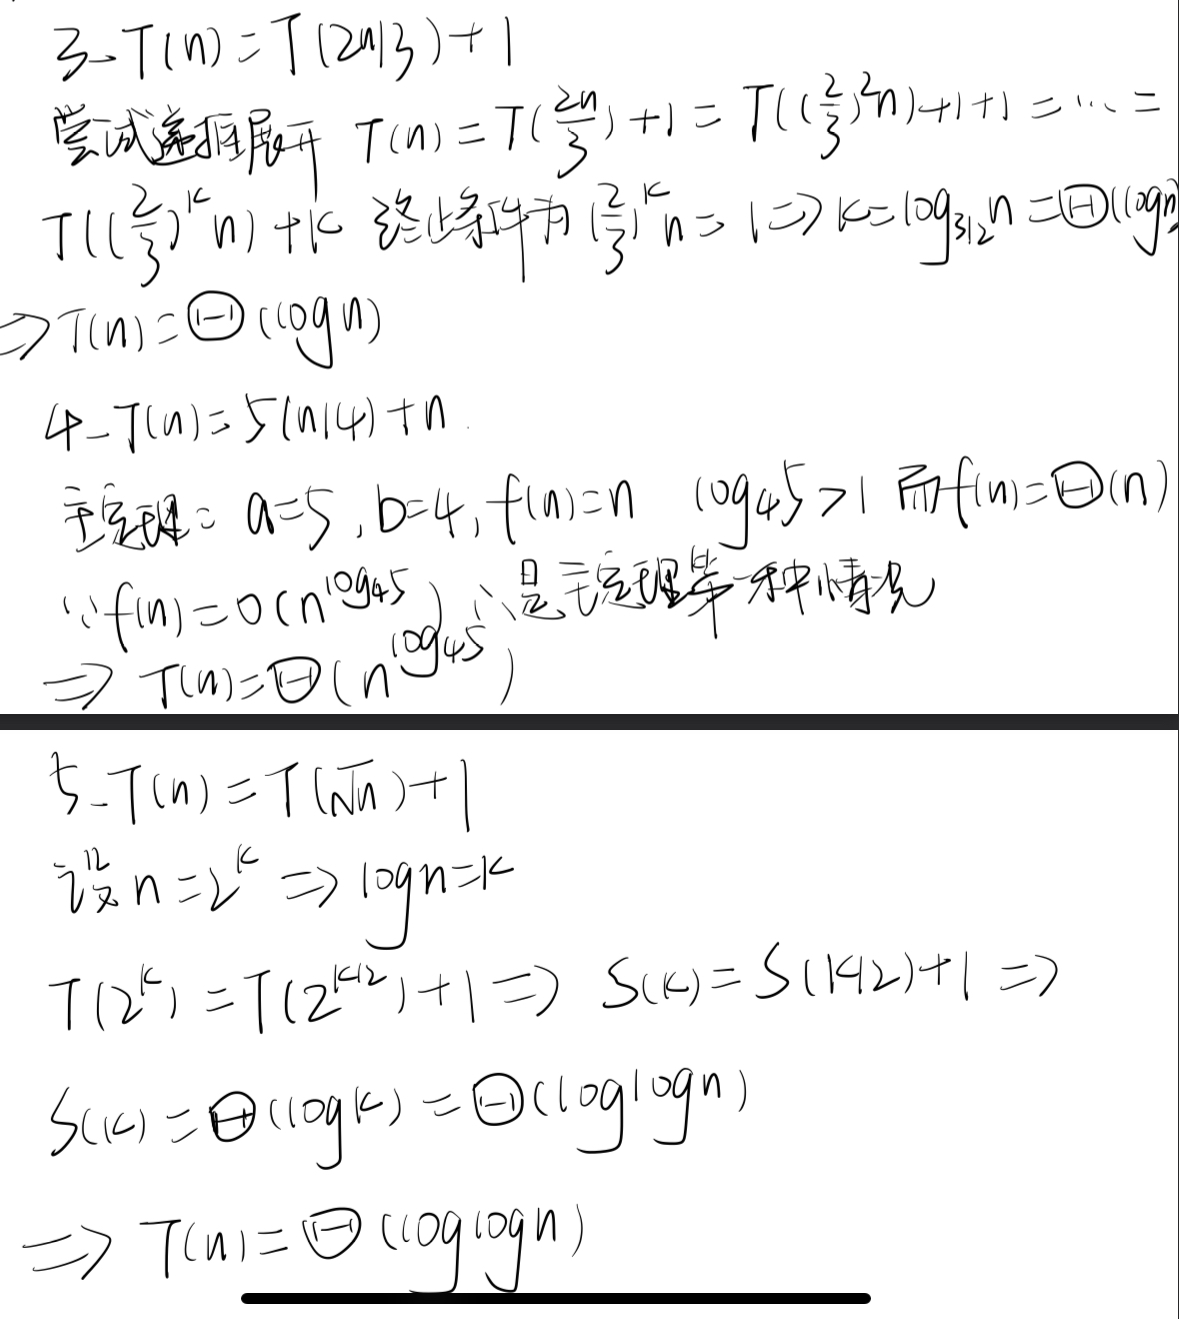 3-T(n)=T(2n/3)+1
尝试递推展开 T(n)=T(2n/3)+1=T((2/3)²n)+1+1=…=
T((2/3)^k n)+k 终止条件为(2/3)^k n=1⇒k=log_{3/2}n=Θ(logn)
⇒T(n)=Θ(logn)
4-T(n)=5(n/4)+n
主定理: a=5,b=4,f(n)=n log₄5>1 而f(n)=Θ(n)
∵f(n)=O(n^{log₄5}) ∴是主定理第一种情况
⇒T(n)=Θ(n^{log₄5})
5-T(n)=T(√n)+1
设n=2^k⇒logn=k
T(2^k)=T(2^{k/2})+1⇒S(k)=S(k/2)+1⇒
S(k)=Θ(logk)=Θ(loglogn)
⇒T(n)=Θ(loglogn)